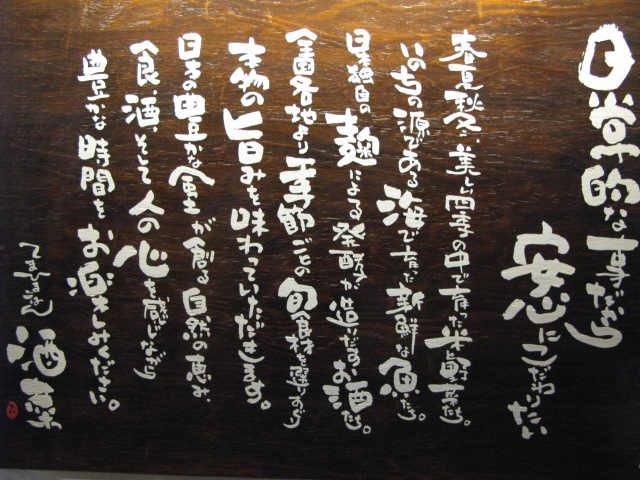 日常的な事だから
安心にこだわりたい
春夏秋冬、美しい四季の中で育った米と野菜たち。
いのちの源である海で育った新鮮な魚たち。
日本独自の麹による発酵が造りだすお酒たち。
全国各地より季節ごとの旬食材を選りすぐり
本物の旨みを味わっていただきます。
日本の豊かな風土が創る自然の恵み、
食、酒、そして人の心を感じながら
豊かな時間をお楽しみください。
てまひまごはん
酒菜